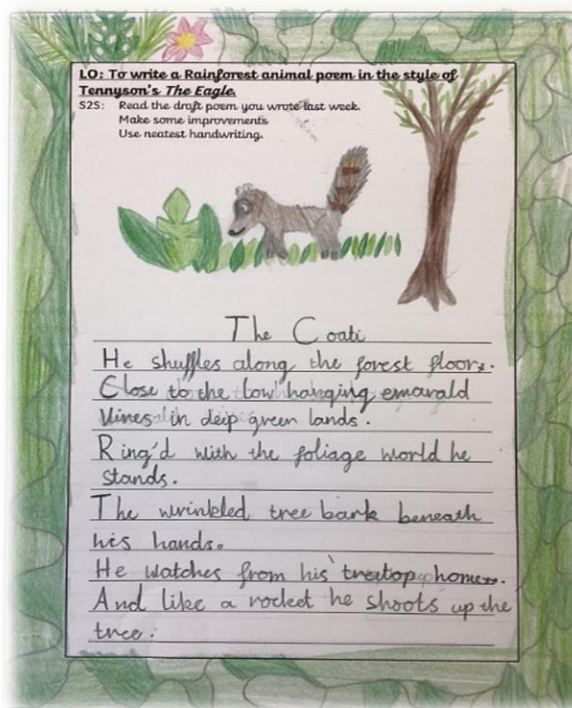 LO: To write a Rainforest animal poem in the style of
Tennyson's The Eagle.
S2S: Read the draft poem you wrote last week.
Make some improvements
Use neatest handwriting.
The Coati
He shuffles along the forest floor.
Close to the low hanging emarald
Vines in deep green lands.
Ring'd with the foliage world he
stands.
The wrinkled tree bark beneath
his hands.
He watches from his treetop home.
And like a rocket he shoots up the
tree.